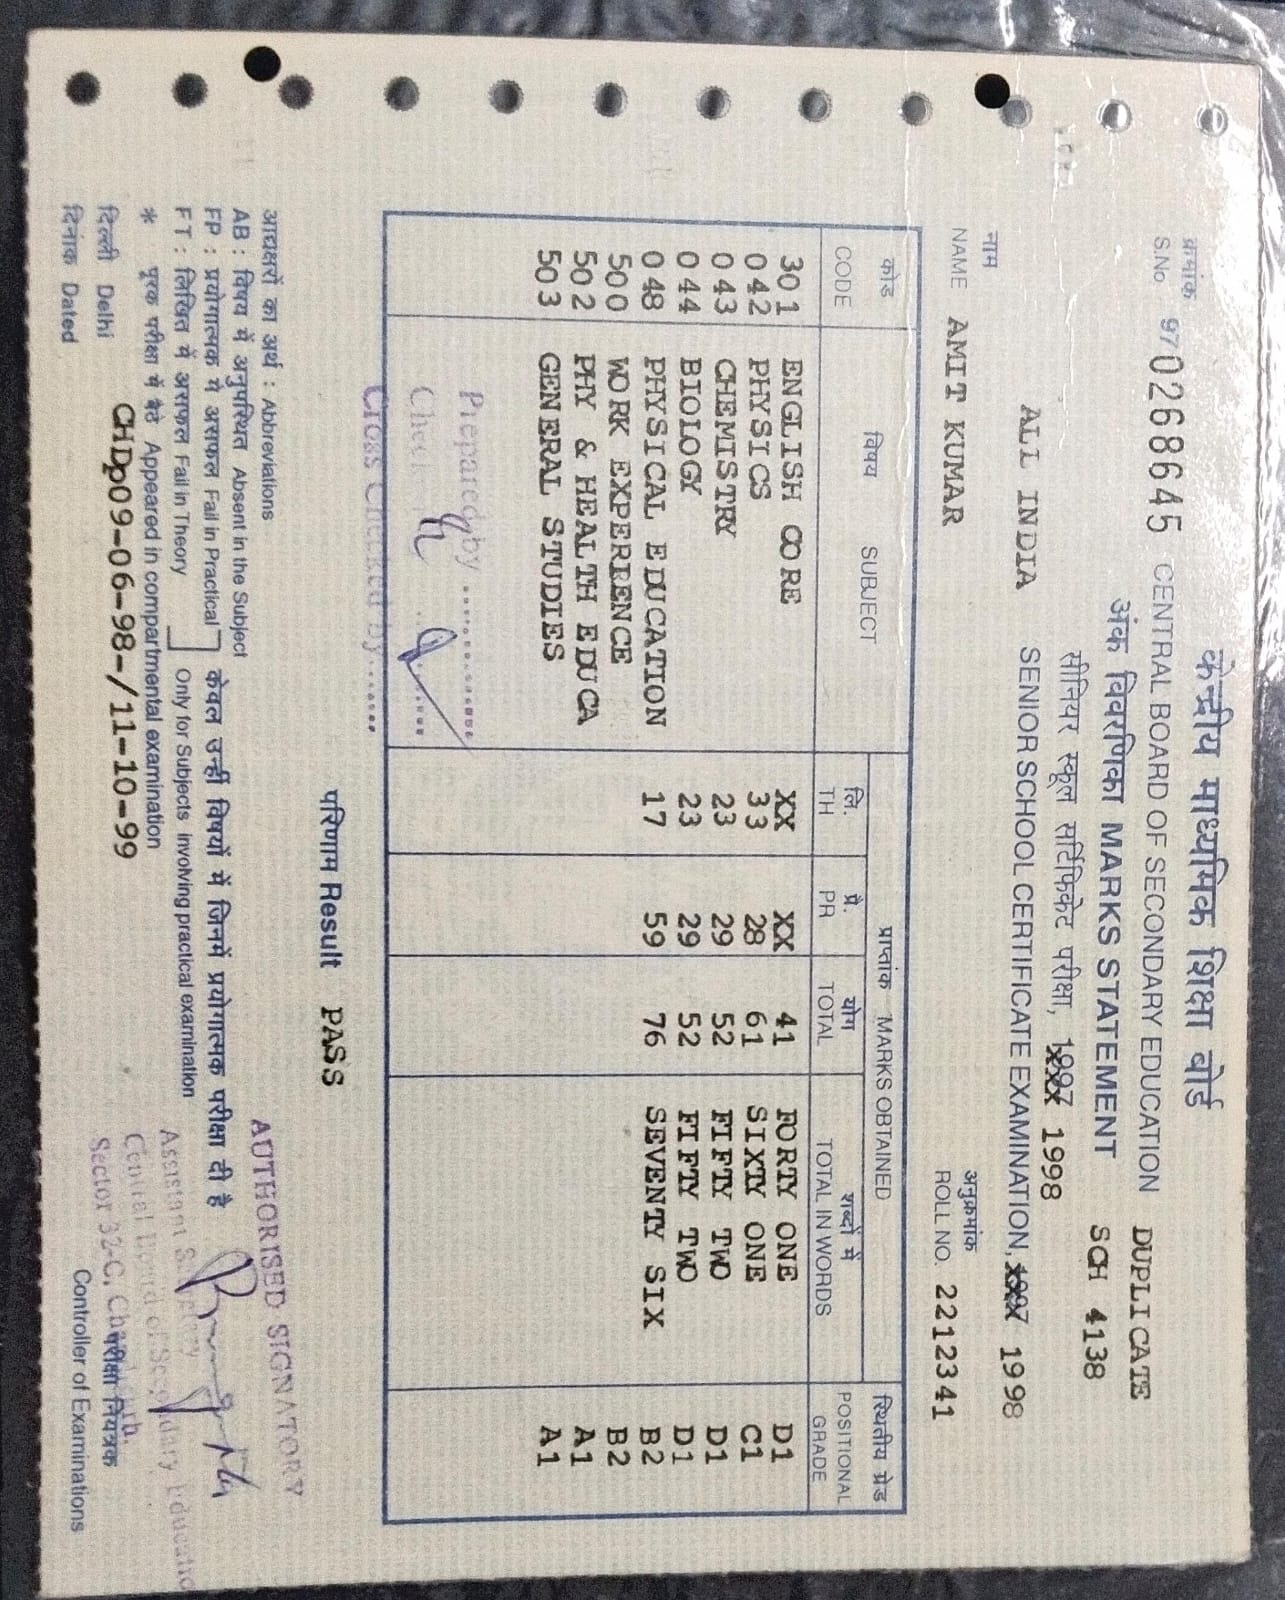 केन्द्रीय माध्यमिक शिक्षा बोर्ड
क्रमांक
S.No 97 0268645 CENTRAL BOARD OF SECONDARY EDUCATION DUPLICATE
अंक विवरणिका MARKS STATEMENT SCH 4138
सीनियर स्कूल सर्टिफिकेट परीक्षा, 1997 1998
ALL INDIA SENIOR SCHOOL CERTIFICATE EXAMINATION, 1997 1998
नाम अनुक्रमांक
NAME AMIT KUMAR ROLL NO. 2212341
कोड विषय SUBJECT प्राप्तांक MARKS OBTAINED स्थितीय ग्रेड
CODE लि. प्रे. योग शब्दों में POSITIONAL
TH PR TOTAL TOTAL IN WORDS GRADE
301 ENGLISH CORE XX XX 41 FORTY ONE D1
042 PHYSICS 33 28 61 SIXTY ONE C1
043 CHEMISTRY 23 29 52 FIFTY TWO D1
044 BIOLOGY 23 29 52 FIFTY TWO D1
048 PHYSICAL EDUCATION 17 59 76 SEVENTY SIX B2
500 WORK EXPERRENCE B2
502 PHY & HEALTH EDUCA A1
503 GENERAL STUDIES A1
Prepared by ..............
Cross Checked by.......
परिणाम Result PASS
आद्यक्षरों का अर्थ : Abbreviations
AB : विषय में अनुपस्थित Absent in the Subject
FP : प्रयोगात्मक में असफल Fail in Practical केवल उन्हीं विषयों में जिनमें प्रयोगात्मक परीक्षा दी है
FT : लिखित में असफल Fail in Theory Only for Subjects involving practical examination
* पूरक परीक्षा में बैठे Appeared in compartmental examination
AUTHORISED SIGNATORY
Assistant Secretary
Central Board of Secondary Education
Sector 32-C, Chandigarh.
दिल्ली Delhi CHDp09-06-98-/11-10-99 परीक्षा नियंत्रक
दिनांक Dated Controller of Examinations